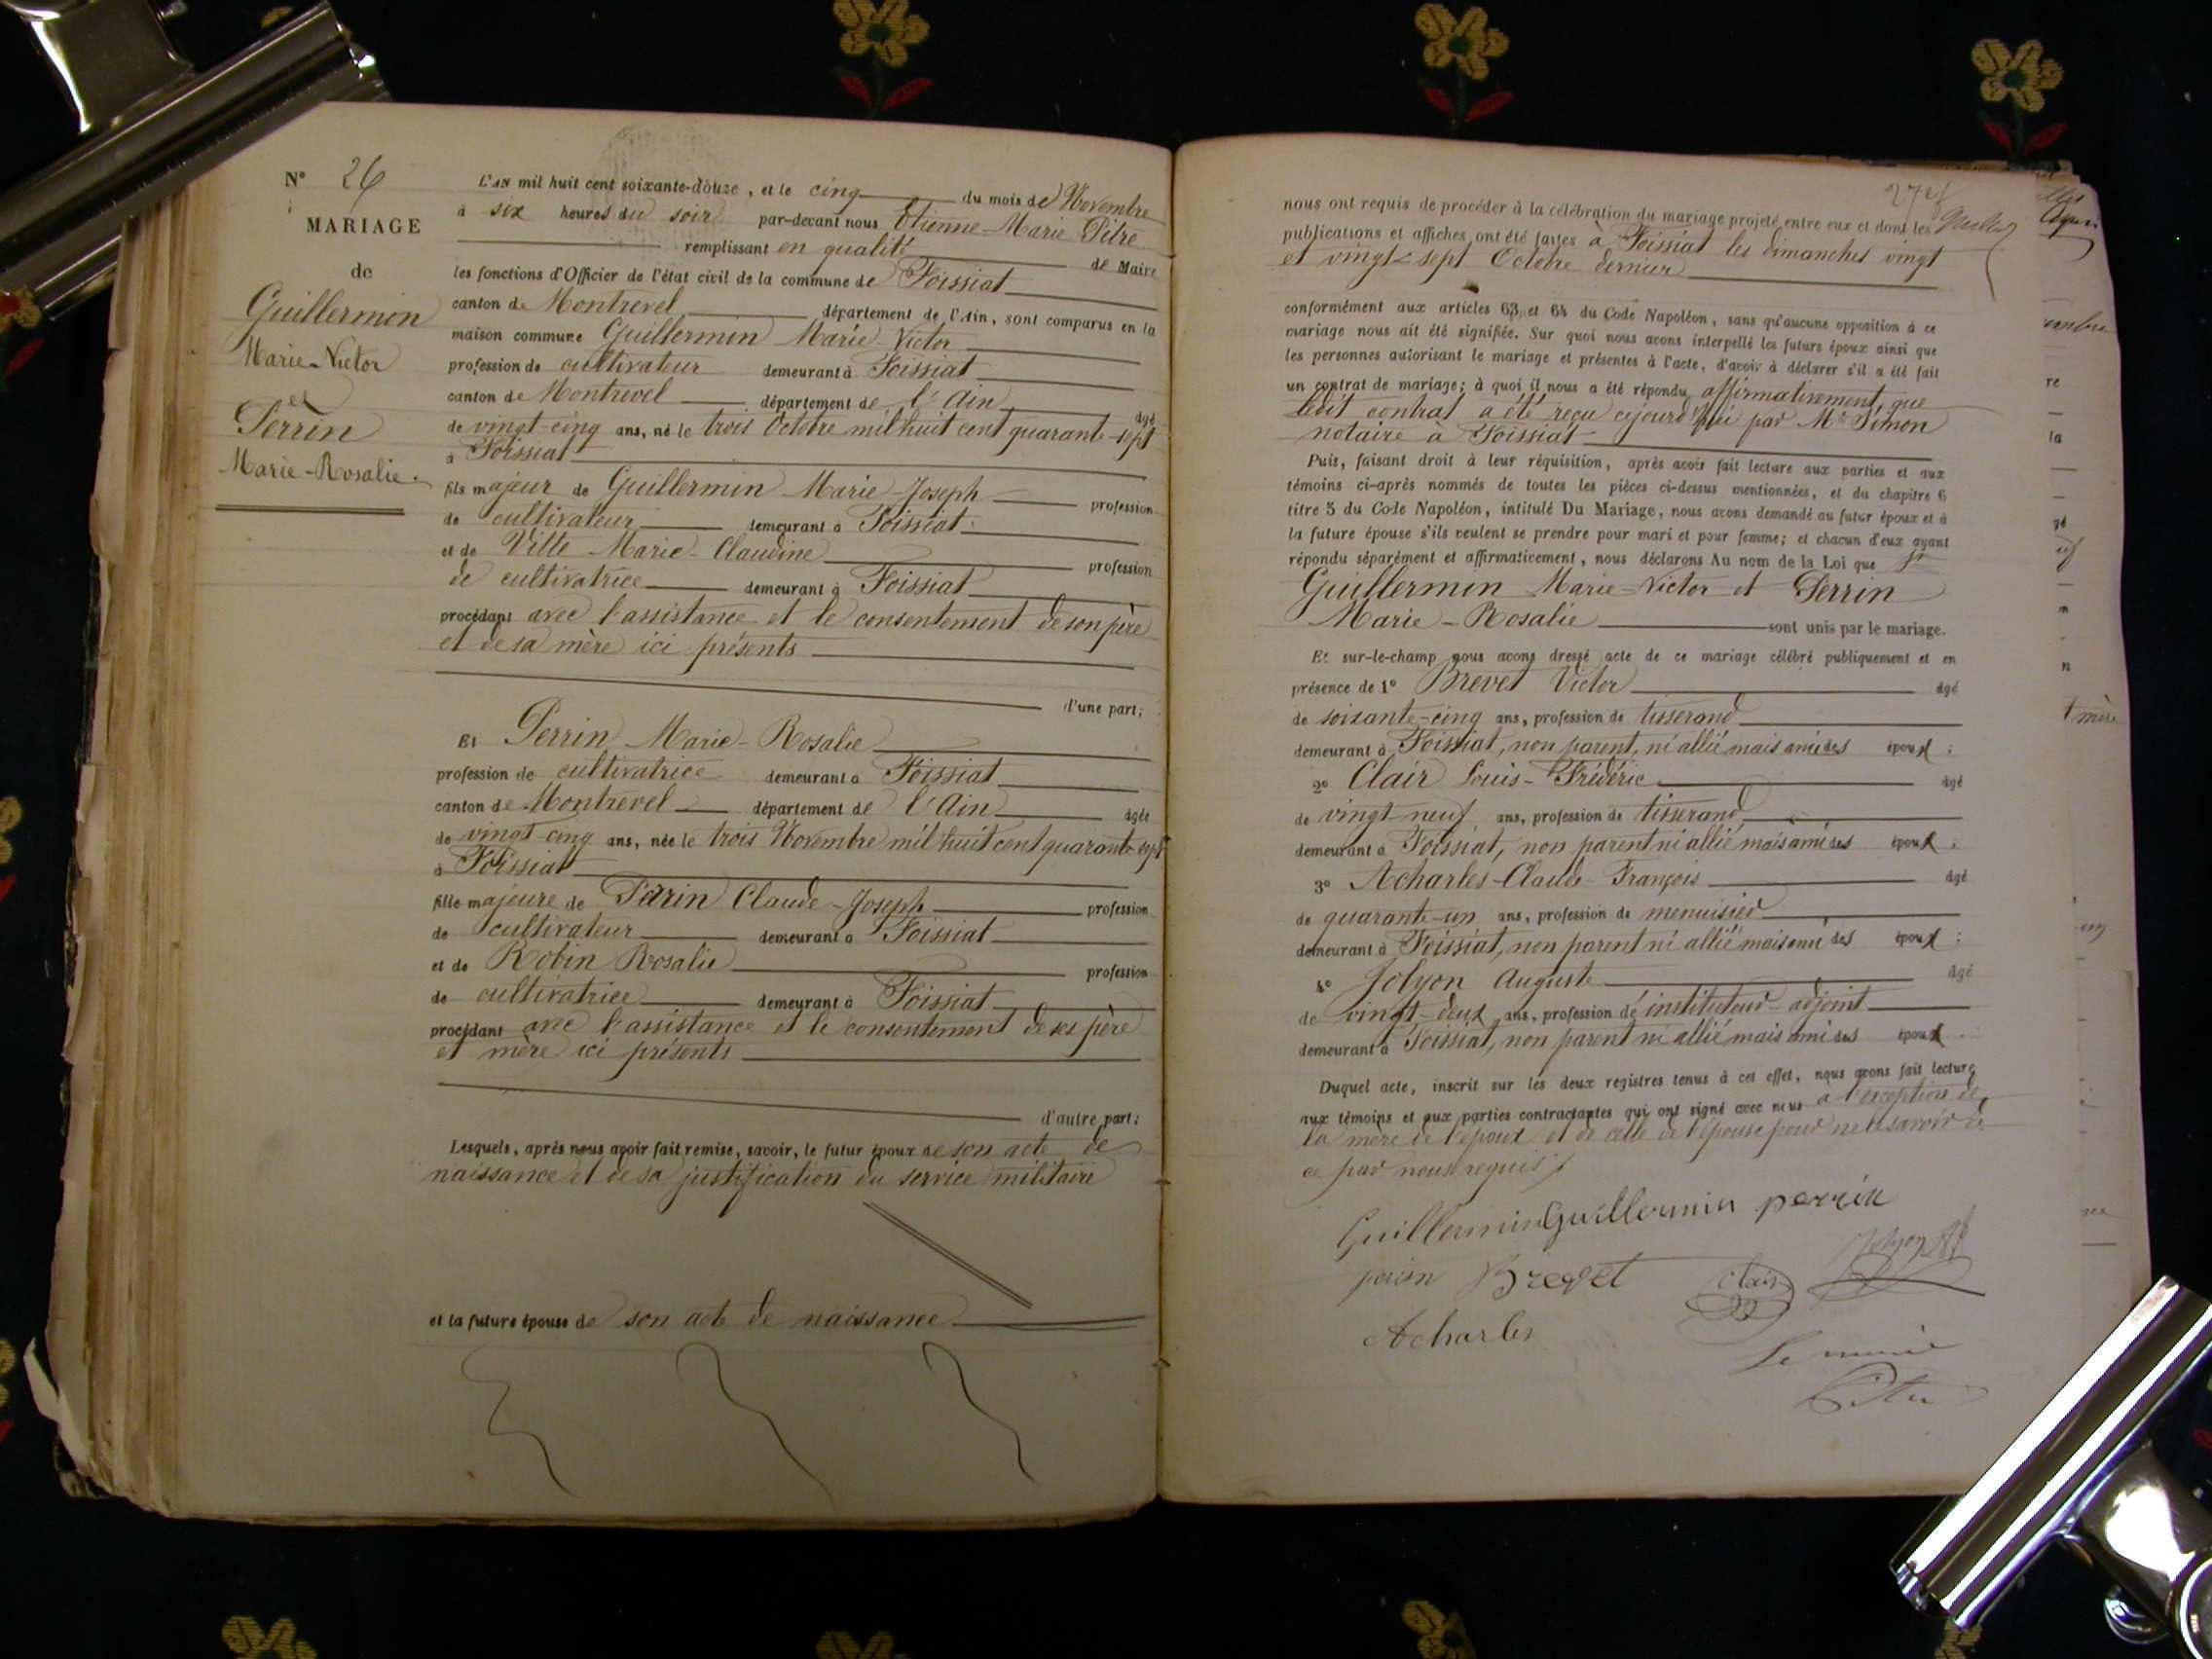 N° 26
MARIAGE
de
Guillermin
Marie-Victor
et
Perrin
Marie-Rosalie.
L'AN mil huit cent soixante-douze, et le cinq du mois de Novembre
à six heures du soir par-devant nous Etienne-Marie Pitre
remplissant en qualité de Maire
les fonctions d'Officier de l'état civil de la commune de Foissiat
canton de Montrevel département de l'Ain, sont comparus en la
maison commune Guillermin Marie-Victor
profession de cultivateur demeurant à Foissiat
canton de Montrevel département de l'Ain âgé
de vingt-cinq ans, né le trois Octobre mil huit cent quarante-sept
à Foissiat
fils majeur de Guillermin Marie-Joseph profession
de cultivateur demeurant à Foissiat
et de Vitte Marie-Claudine profession
de cultivatrice demeurant à Foissiat
procédant avec l'assistance et le consentement de son père
et de sa mère ici présents
d'une part;
Et Perrin Marie-Rosalie
profession de cultivatrice demeurant à Foissiat
canton de Montrevel département de l'Ain âgée
de vingt-cinq ans, née le trois Novembre mil huit cent quarante-sept
à Foissiat
fille majeure de Perrin Claude-Joseph profession
de cultivateur demeurant à Foissiat
et de Robin Rosalie profession
de cultivatrice demeurant à Foissiat
procédant avec l'assistance et le consentement de ses père
et mère ici présents
d'autre part;
Lesquels, après nous avoir fait remise, savoir, le futur époux de son acte de
naissance et de sa justification du service militaire
et la future épouse de son acte de naissance
nous ont requis de procéder à la célébration du mariage projeté entre eux et dont les
publications et affiches ont été faites à Foissiat les dimanches vingt
et vingt-sept Octobre dernier
conformément aux articles 63 et 64 du Code Napoléon, sans qu'aucune opposition à ce
mariage nous ait été signifiée. Sur quoi nous avons interpellé les futurs époux ainsi que
les personnes autorisant le mariage et présentes à l'acte, d'avoir à déclarer s'il a été fait
un contrat de mariage; à quoi il nous a été répondu affirmativement, que
ledit contrat a été reçu cejourd'hui par Me Simon
notaire à Foissiat
Puis, faisant droit à leur réquisition, après avoir fait lecture aux parties et aux
témoins ci-après nommés de toutes les pièces ci-dessus mentionnées, et du chapitre 6
titre 5 du Code Napoléon, intitulé Du Mariage, nous avons demandé au futur époux et à
la future épouse s'ils veulent se prendre pour mari et pour femme; et chacun d'eux ayant
répondu séparément et affirmativement, nous déclarons Au nom de la Loi que
Guillermin Marie-Victor et Perrin
Marie-Rosalie sont unis par le mariage.
Et sur-le-champ nous avons dressé acte de ce mariage célébré publiquement et en
présence de 1° Brevet Victor âgé
de soixante-cinq ans, profession de tisserand
demeurant à Foissiat, non parent, ni allié mais ami des époux;
2° Clair Louis-Frédéric âgé
de vingt-neuf ans, profession de tisserand
demeurant à Foissiat, non parent ni allié mais ami des époux;
3° Acharles Claude-François âgé
de quarante-un ans, profession de menuisier
demeurant à Foissiat, non parent ni allié mais ami des époux;
4° Jolyon Auguste âgé
de vingt-deux ans, profession de instituteur-adjoint
demeurant à Foissiat, non parent ni allié mais ami des époux
Duquel acte, inscrit sur les deux registres tenus à cet effet, nous avons fait lecture
aux témoins et aux parties contractantes qui ont signé avec nous à l'exception de
la mère de l'époux et de celle de l'épouse pour ne le savoir de
ce par nous requis
Guillermin Guillermin perrin
Brevet Clair Jolyon
Acharles
Le maire
Pitre